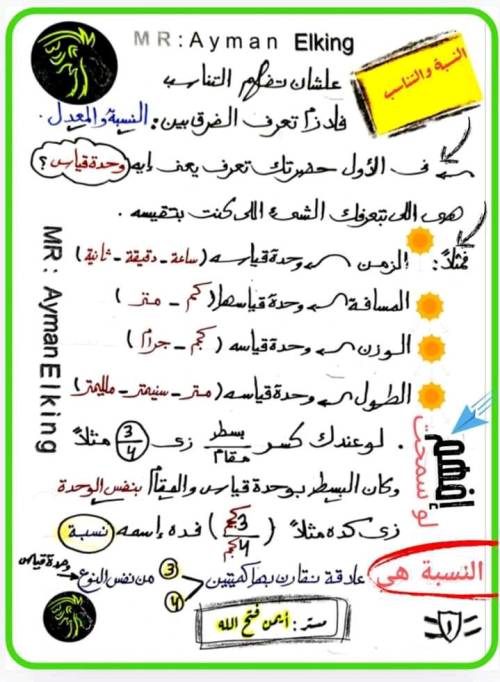 MR:Ayman Elking
النسبة والتناسب
علشان تفهم التناسب
فلازم تعرف الفرق بين: النسبة والمعدل.
فى الأول حضرتك تعرف يعنى إيه وحدة قياس؟
هى اللى بتعرفك الشئ اللى كنت بتقيسه.
فمثلاً: الزمن وحدة قياسه (ساعة - دقيقة - ثانية)
المسافة وحدة قياسها (كم - متر)
الوزن وحدة قياسه (كجم - جرام)
الطول وحدة قياسه (متر - سنيمتر - ملليمتر)
MR: Ayman Elking
إفهم
لو سمحت
. لو عندك كسر بسط/مقام زى 3/4 مثلاً
وكان البسط بوحدة قياس والمقام بنفس الوحدة
زى كده مثلاً (3 كجم/4 كجم) فده إسمه نسبة
النسبة هى علاقة نقارن بها كميتين 3 4 من نفس النوع وحدة قياس
مستر: أيمن فتح الله
١